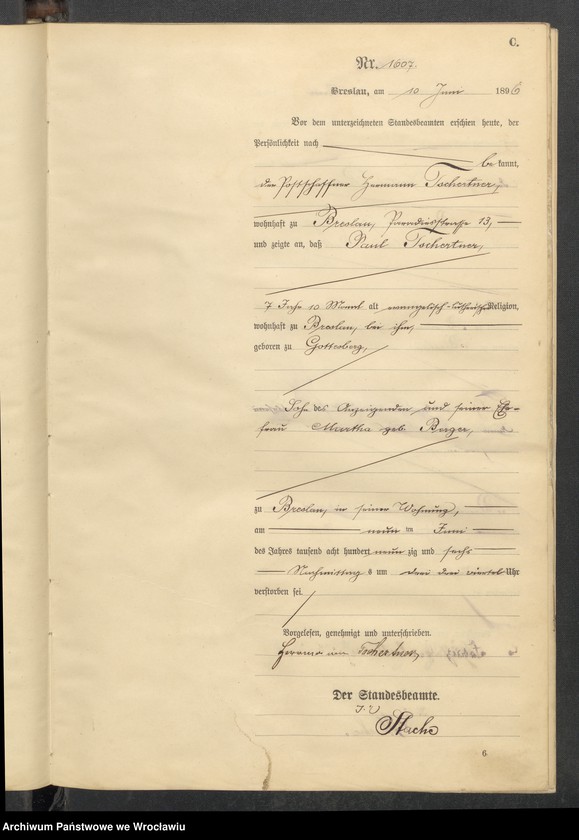 C.
Nr. 1607.
Breslau, am 10 Juni 1896
Vor dem unterzeichneten Standesbeamten erschien heute, der
Persönlichkeit nach
bekannt,
der Postschaffner Hermann Tschertner,
wohnhaft zu Breslau, Paradiesstraße 13,
und zeigte an, daß Paul Tschertner,
7 Jahr 10 Monat alt evangelisch-lutherischer Religion,
wohnhaft zu Breslau, bei ihm,
geboren zu Gottesberg,
Sohn des Anzeigenden und seiner Ehe-
frau Martha geb. Berger,
zu Breslau, in seiner Wohnung,
am neun ten Juni
des Jahres tausend acht hundert neunzig und sechs
Nachmittags um drei drei viertel Uhr
verstorben sei.
Vorgelesen, genehmigt und unterschrieben.
Hermann Tschertner,
Der Standesbeamte.
I. V.
Stache
6
Archiwum Państwowe we Wrocławiu